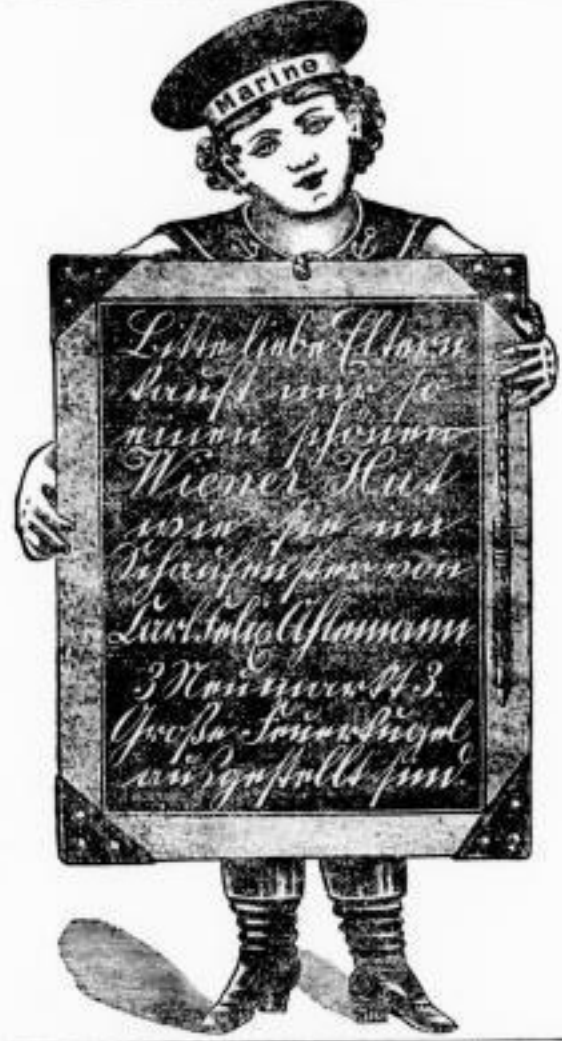 Marine
Bitte liebe Eltern
kauft mir so
einen schönen
Wiener Hut
wie sie im
Schaufenster von
Carl Felix Ahlemann
3 Neumarkt 3.
Große Feuerkugel
ausgestellt sind